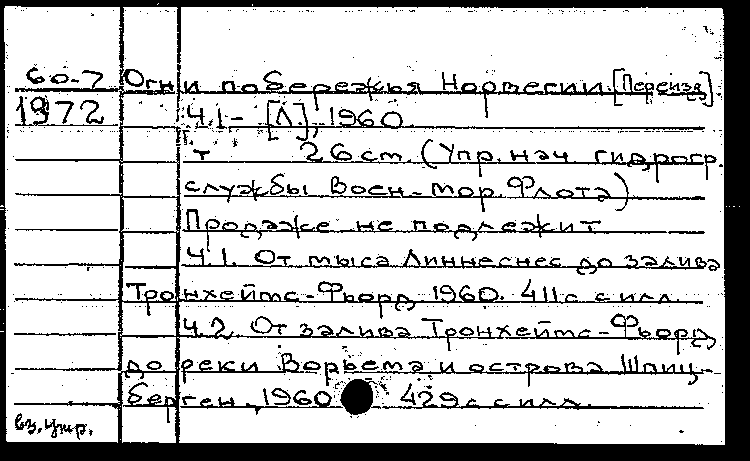 60-7 Огни побережья Норвегии. [Переизд]
1972 Ч.1- [Л], 1960.
т 26 см. (Упр. нач. гидрогр.
службы Воен.-мор. Флота)
Продаже не подлежит
Ч.1. От мыса Линнеснес до залива
Тронхеймс-Фьорд. 1960. 411 с с илл.
Ч.2. От залива Тронхеймс-Фьорд
до реки Ворьема и острова Шпиц-
берген, 1960 429 с с илл.
вз. утр.